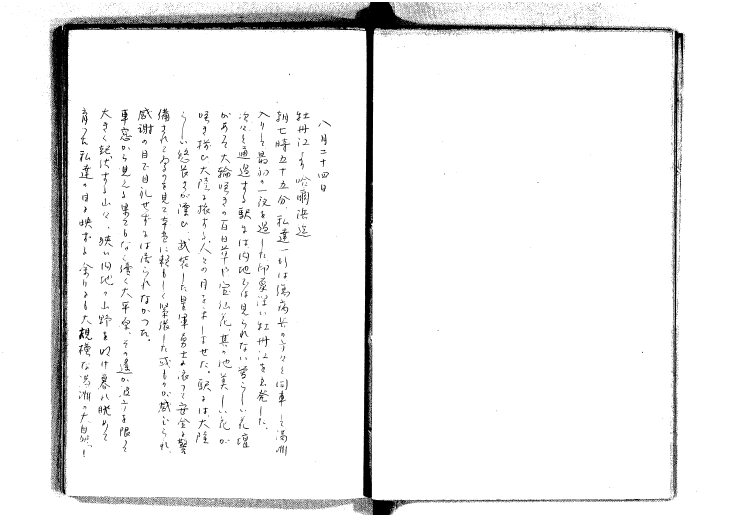 八月二十四日
牡丹江より哈爾浜迄
朝七時五十五分、私達一行は傷病兵の方々と同車して満洲
入りして最初の一夜を過した印象深い牡丹江を出発した。
次々と通過する駅には内地では見られない芽らしい花壇
があって大輪咲きの百日草や宝仙花、其の他美しい花が
咲き揃ひ大陸を旅する人々の目をたのしませた。駅には大陸
らしい悠長さが漂ひ、武装した皇軍勇士に依って安全に警
備されてゐるのを見て本当に頼もしく緊張した或るものが感じられ、
感謝の目で目礼せずには居られなかった。
車窓から見える果てもなく続く大平原、その遥か彼方を限って
大きく起伏する山々、狭い内地の山野を明け暮れ眺めて
育った私達の目に映ずる余りにも大規模な満洲の大自然!